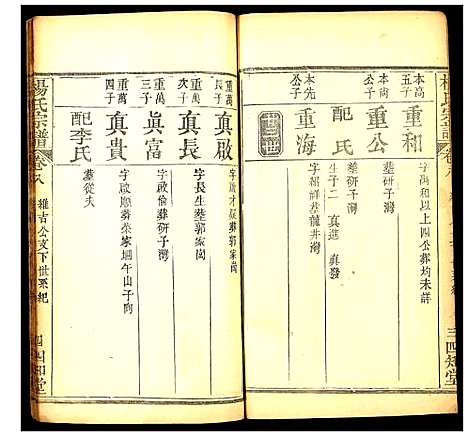 本高
五子
重和
字萬和以上四公葬均未詳
本尚
公子
重公
墓研子灣
配氏
墓研子灣
生子二 真進 真發
本先
公子
重海
字福祥葬龍井灣
三四知堂
重萬
長子
真啟
葬郭家崗
重萬
次子
真長
字長生葬郭家崗
重萬
三子
真富
字啟倫葬研子灣
重萬
四子
真貴
字啟順葬秦家塆午山子向
配李氏
墓從夫
楊氏宗譜
卷八
維吉公支下世系紀
四四知堂